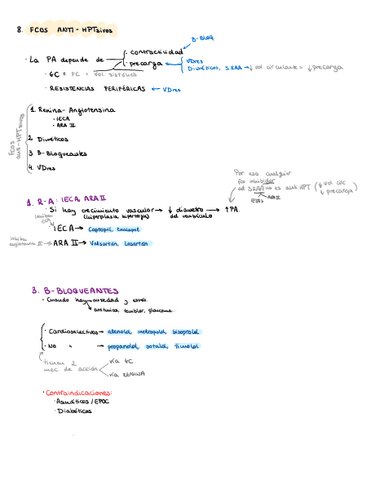 8. FCOS ANTI-HPTsivos
· La PA depende de
· contractilidad
→ B-Bloq
· precarga
VDres
Diuréticos, SRAA → ↓ vol circulante = ↓ precarga
· GC = FC × vol sistólico
· RESISTENCIAS PERIFÉRICAS ← VDres
Fcos anti-HPTsivos
1. Renina-Angiotensina
· IECA
· ARA II
2. Diuréticos
3. B-Bloqueantes
4. VDres
1. R-A: IECA, ARA II
· Si hay crecimiento vascular → ↓ diámetro → ↑ PA.
(hiperplasia, hipertrofia) del vasículo
IECA → Captopril, Enalapril
ARA II → Valsartán, Losartán
Por eso cualquier
fco inhibidor
del SRAA → es anti HPT (↓ vol circ
↓ precarga)
IECAs
ARA II
3. B-BLOQUEANTES
· Cuando hay ansiedad y estrés
arritmias, temblor, glaucoma
· Cardioselectivos → atenolol, metoprolol, bisoprolol
· No " → propanolol, sotalol, timolol
tienen 2
mec de acción
vía GC
vía RENINA
· Contraindicaciones:
· Asmáticos/EPOC
· Diabéticos